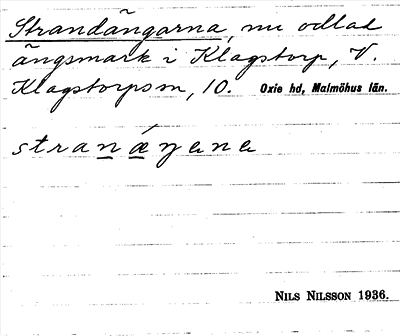 Strandängarna, nu odlad
ängsmark i Klagstorp, V.
Klagstorps sn, 10. Oxie hd, Malmöhus län.
NILS NILSSON 1936.